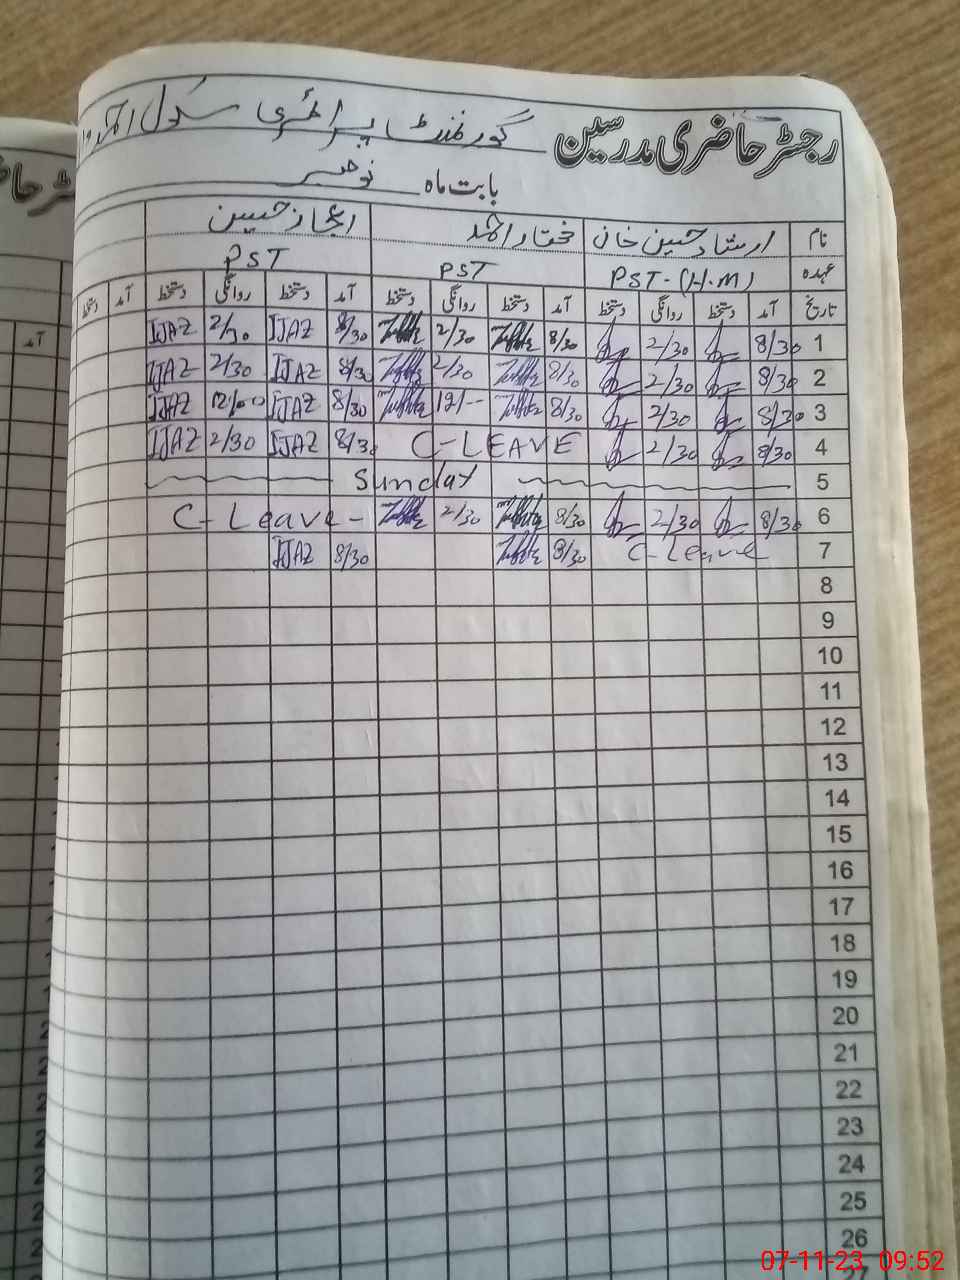 رجسٹر حاضری مدرسین گورنمنٹ پرائمری سکول احمد
بابت ماہ نومبر
نام ارشاد حسین خان مختار احمد اعجاز حسین
عہدہ PST-(H.M) PST PST
تاریخ آمد دستخط روانگی دستخط آمد دستخط روانگی دستخط آمد دستخط روانگی دستخط آمد دستخط
1 8/30 2/30 8/30 2/30 8/30 IJAZ 2/30 IJAZ
2 8/30 2/30 8/30 2/30 8/30 IJAZ 2/30 IJAZ
3 8/30 2/30 8/30 12/-- 8/30 IJAZ 12/00 IJAZ
4 8/30 2/30 C-LEAVE 8/30 IJAZ 2/30 IJAZ
5 Sunday
6 8/30 2/30 8/30 2/30 C-Leave-
7 C-Leave 8/30 8/30 IJAZ
8
9
10
11
12
13
14
15
16
17
18
19
20
21
22
23
24
25
26
07-11-23 09:52